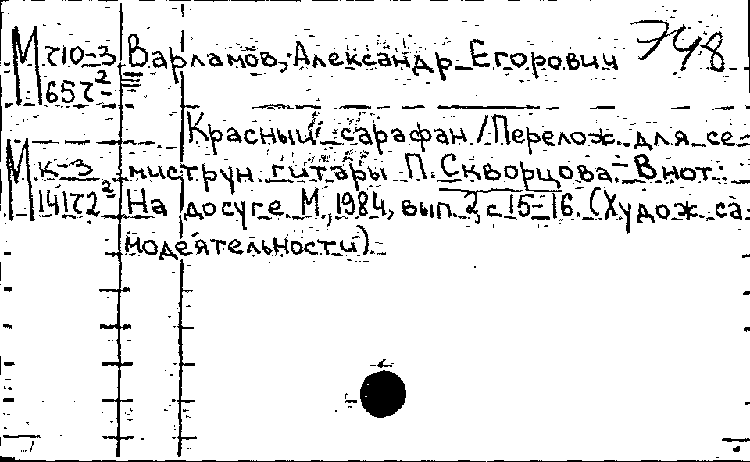 М т10-3 Варламов, Александр Егорович Э48
65т2=
Красный сарафан / Перелож. для се-
М к-3 миструн. гитары П. Скворцова.- В нот.:
141т2 2= На досуге. М., 1984, вып. 2, с 15-16. (Худож са-
модеятельности).